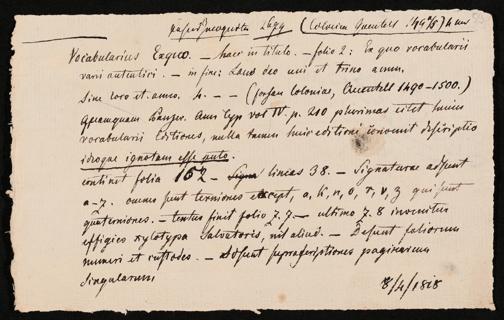 (Coloniae Quentell 149⅘) 4 min
Vocabularius Exquo. – haec in titulo. – folio 2: Ex quo vocabularii
varii autentici. – in fine: Laus deo uni et trino amen.
Sine loco et anno. 4. – – (forsan Coloniae, Quentell 1490–1500.)
Quamquam Panzer. Ann. typ vol IV. p. 210 plurimas citet huius
vocabularii Editiones, nulla tamen huic editioni convenit descriptio
ideoque ignotam esse puto.
continet folia 162 – lineas 38. – Signaturae adsunt
a–z. omnes sunt terniones except, a, k, n, o, r, v, z qui sunt
quaterniones. – textus finit folio z. 7. – ultimo z. 8 invenitur
effigies xylotypa Salvatoris, nil aliud. – Desunt foliorum
numeri et custodes. – Adsunt suprascriptiones paginarum
singularum
8/4/1818